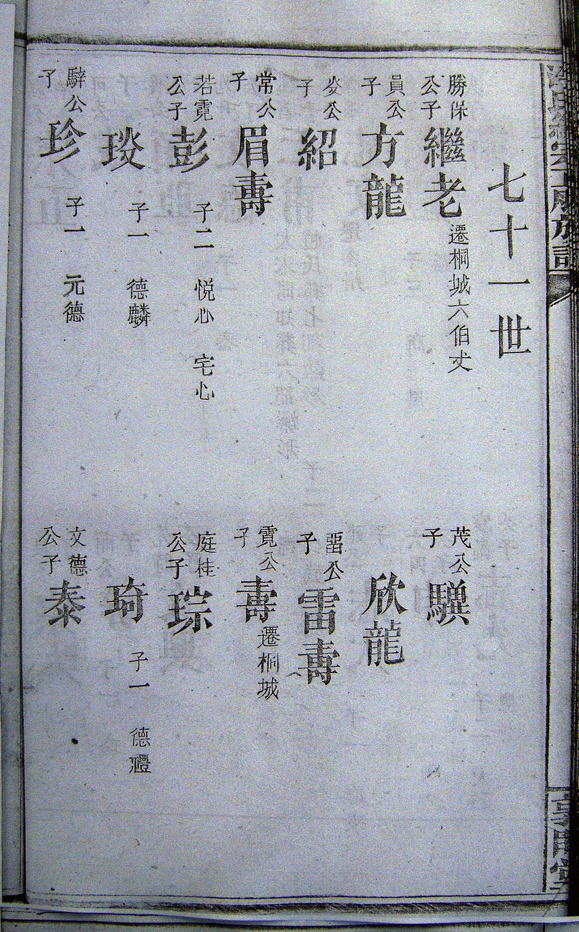 七十一世
勝保公子 繼老 遷桐城六伯丈
茂公子 驥
員公子 方龍
欣龍
炎公子 紹
公子 雷壽
常公子 眉壽
霓公子 壽 遷桐城
若霓公子 彭 子二 悦心 宅心
庭桂公子 琮
琰 子一 德麟
琦 子一 德禮
騂公子 珍 子一 元德
文德公子 泰